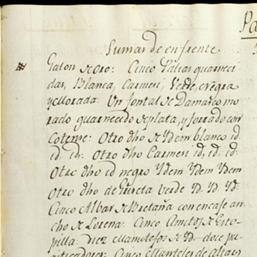 Suma de enfrente
Galon de Oro: Cinco Palias guarneci
das, Blanca, Carmesi, Verde, Negra
y Morada: Un frontal de Damasco mo
rado guarnecido de plata, y forrado con
Cotense: Otro dho de Idem blanco id
id. id: Otro dho Carmesi id, id. id:
Otro dho id negro Idem Idem Idem
Otro dho de verde Id. Id. Id
Cinco Albas de Bretaña con encaje an
cho de Lorena: Cinco Amitos de
pilla: Diez Id: doce pu
rificadores: Cinco Manteles de altares
Pa